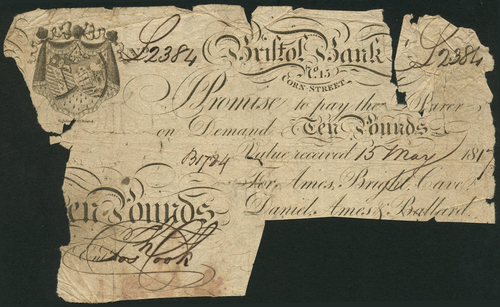 L2384 Bristol Bank L2384
No. 15
CORN STREET
I Promise to pay the Bearer
on Demand Ten Pounds
B1724 Value received 15 May 1817
For Ames, Bright, Cave,
Daniel, Ames & Ballard
Ten Pounds
Cook